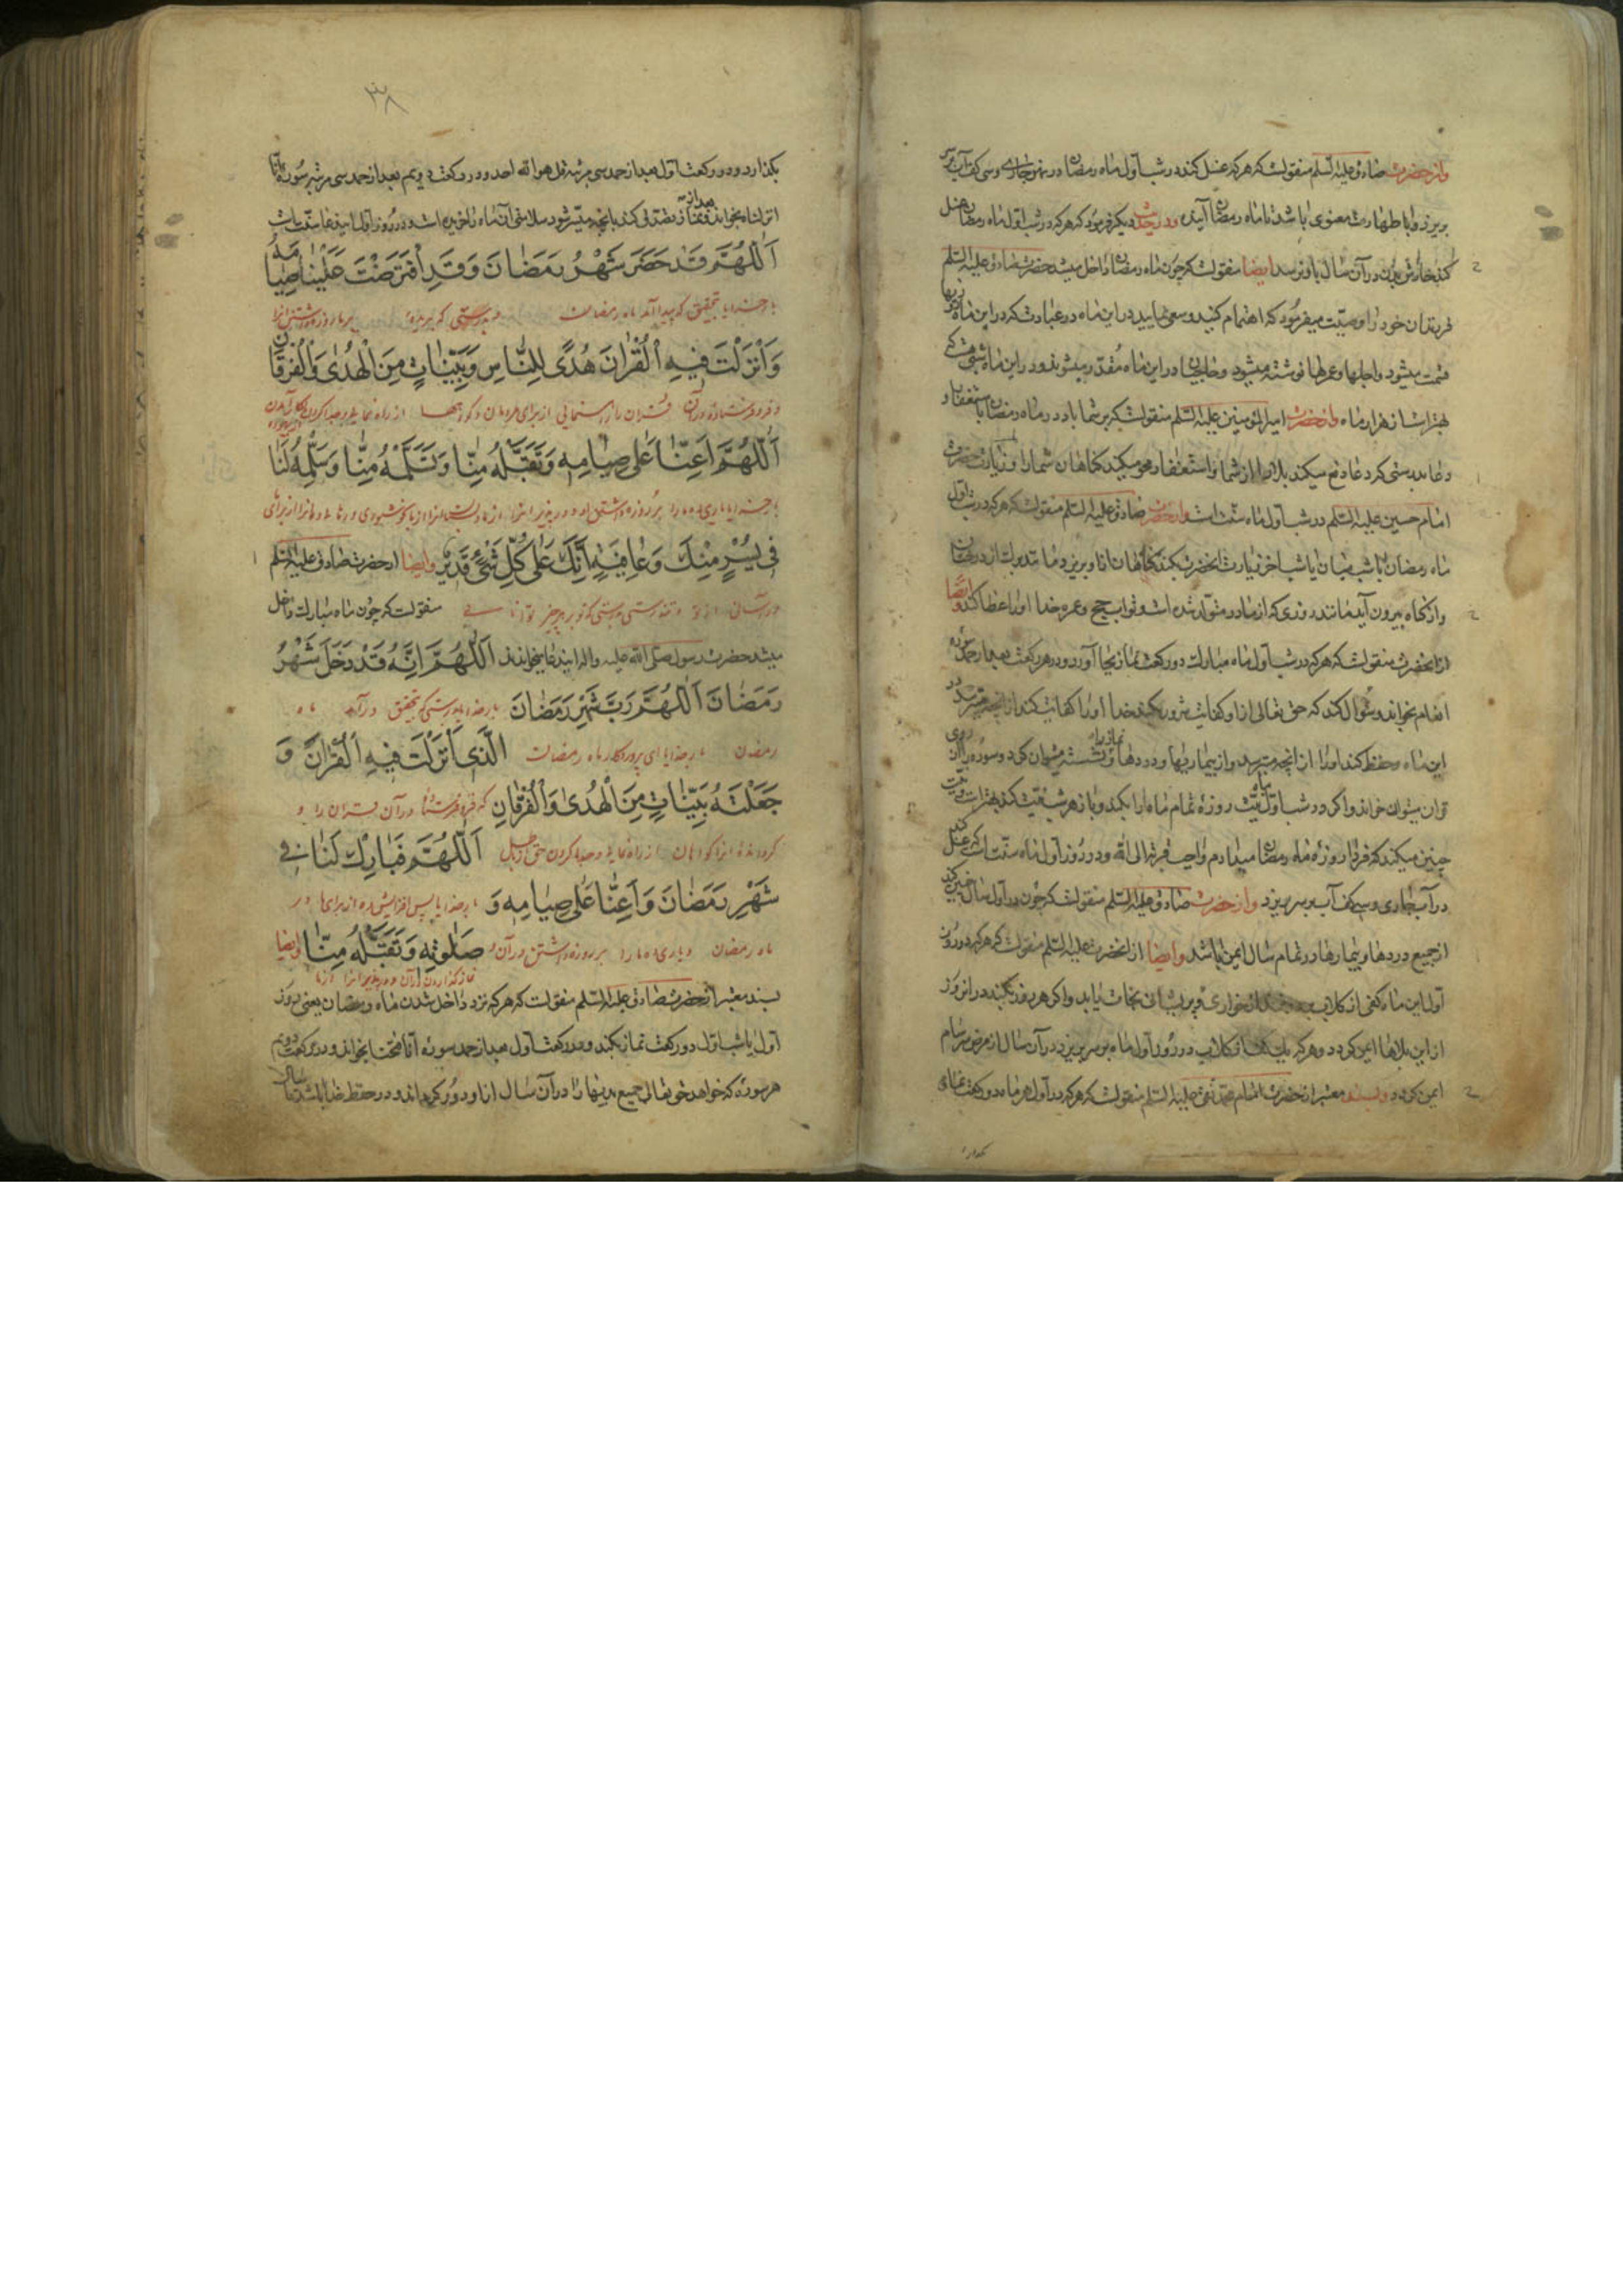 واز حضرت صادق علیه السلم منقولست که هرکه غسل کند در شب اول ماه رمضان در نهر جاری و سی کف آب بر سر
بریزد و با طهارت معنوی باشد تا ماه رمضان آینده و در حدیث دیگر فرمود که هرکه در شب اول ماه رمضان غسل
کند خارش بدن در آن سال باو نرسد ایضا منقولست که چون ماه رمضان داخل میشد حضرت صادق علیه السلم
فرزندان خود را وصیت میفرمود که اهتمام کنید و سعی نمایید در این ماه در عبادت که در این ماه روزیها
قسمت میشود و اجلها و عمرها نوشته میشود و در این ماه مقدر میشوند و در این ماه شبی هست که
بهتر است از هزار ماه و از حضرت امیرالمؤمنین علیه السلم منقولست که بر شما باد در ماه رمضان باستغفار و
دعا بدرستی که دعا دفع میکند بلا را از شما و استغفار محو میکند گناهان شما را و زیارت حضرت
امام حسین علیه السلم در شب اول ماه سنت است و از حضرت صادق علیه السلم منقولست که هرکه در شب اول
ماه رمضان یا شب نیمه آن یا شب آخر زیارت آنحضرت بکند گناهان او بریزد
و از گناه بیرون آید مانند روزی که از مادر متولد شده است و ثواب حج و عمره خدا او را عطا کند و ایضا
از آنحضرت منقولست که هرکه در شب اول ماه مبارک دو رکعت نماز بجا آورد و در هر رکعت بعد از حمد سوره
انعام بخواند و سؤال کند که حق تعالی از او کفایت شرور بکند خدا او را کفایت کند از آنچه میترسد در
این ماه و حفظ کند او را از آنچه میترسد و از بیماریها و دردها
قران میتوان خواند و اگر در شب اول نیت روزه تمام ماه را بکند و باز هر شب نیت کند بهتر است و نیت
چنین میکند که فردا روزه ماه رمضان میدارم واجب قربة الی الله و در روز اول ماه سنت است که غسل کند
در آب جاری و سی کف آب بر سر بریزد و از حضرت صادق علیه السلم منقولست که چون در اول سال چنین کند
از جمیع دردها و بیماریها در تمام سال ایمن باشد و ایضا از آنحضرت علیه السلم منقولست که هرکه در روز
اول این ماه کفی از گلاب از خواری و پریشانی نجات یابد و اگر هر روز بکند در آنروز
از این بلاها ایمن گردد و هرکه یک کف از گلاب در روز اول ماه بر سر بریزد در آن سال از مرض سرسام
ایمن گردد و بسند معتبر از حضرت امام محمد تقی علیه السلم منقولست که هرکه در اول هر ماه دو رکعت نماز
بگذارد
۳۸
بگذارد و در رکعت اول بعد از حمد سی مرتبه قل هو الله احد و در رکعت دویم بعد از حمد سی مرتبه سوره انا
انزلناه بخواند و بعد از نماز تصدقی کند بآنچه میسر شود سلامتی آن ماه را خریده است و در روز اول این دعا سنت است
اَللّٰهُمَّ قَدْ حَضَرَ شَهْرُ رَمَضَانَ وَقَدِ افْتَرَضْتَ عَلَيْنَا صِيَامَهُ
بار خدایا بتحقیق که پیدا آمد ماه رمضان
وَاَنْزَلْتَ فِيهِ الْقُرْانَ هُدًى لِلنَّاسِ وَبَيِّنَاتٍ مِنَ الْهُدٰى وَالْفُرْقَانِ
و فرو فرستاده در آن قران را از رهنمایی از برای مردمان و گواهیها از راه نماینده و جدا کردن
اَللّٰهُمَّ اَعِنَّا عَلٰى صِيَامِهِ وَتَقَبَّلْهُ مِنَّا وَتَسَلَّمْهُ مِنَّا وَسَلِّمْهُ لَنَا
بار خدایا یاری ده ما را بر روزه داشتن او و در پذیر انرا از ما
فِي يُسْرٍ مِنْكَ وَعَافِيَةٍ اِنَّكَ عَلٰى كُلِّ شَيْءٍ قَدِيرٌ وایضا از حضرت صادق علیه السلم
در آسانی از تو و تندرستی بدرستی که تو بر هر چیز توانایی منقولست که چون ماه مبارک داخل
میشد حضرت رسول صلی الله علیه واله این دعا میخواندند اَللّٰهُمَّ اِنَّهُ قَدْ دَخَلَ شَهْرُ
رَمَضَانَ اَللّٰهُمَّ رَبَّ شَهْرِ رَمَضَانَ بار خدایا بدرستی که بتحقیق درآمد ماه
رمضان بار خدایا ای پروردگار ماه رمضان الَّذِي اَنْزَلْتَ فِيهِ الْقُرْانَ وَ
جَعَلْتَهُ بَيِّنَاتٍ مِنَ الْهُدٰى وَالْفُرْقَانِ که فرو فرستاده در آن قران را و
گردانیده انرا گواهان از راه نماینده و جدا کردن حق از باطل اَللّٰهُمَّ فَبَارِكْ لَنَا فِي
شَهْرِ رَمَضَانَ وَاَعِنَّا عَلٰى صِيَامِهِ وَ بار خدایا پس افزایش ده از برای ما در
ماه رمضان و یاری ده ما را بر روزه داشتن در آن صَلٰوتِهِ وَتَقَبَّلْهُ مِنَّا وایضا
نماز گذاردن در آن و در پذیر انرا از ما
بسند معتبر از حضرت صادق علیه السلم منقولست که هرکه نزد داخل شدن ماه رمضان یعنی روز
اول یا شب اول دو رکعت نماز بکند و در رکعت اول بعد از حمد سوره انا فتحنا بخواند و در رکعت دویم
هر سوره که خواهد حق تعالی جمیع بدیها را در آن سال از او دور گرداند و در حفظ خدا باشد تا سال